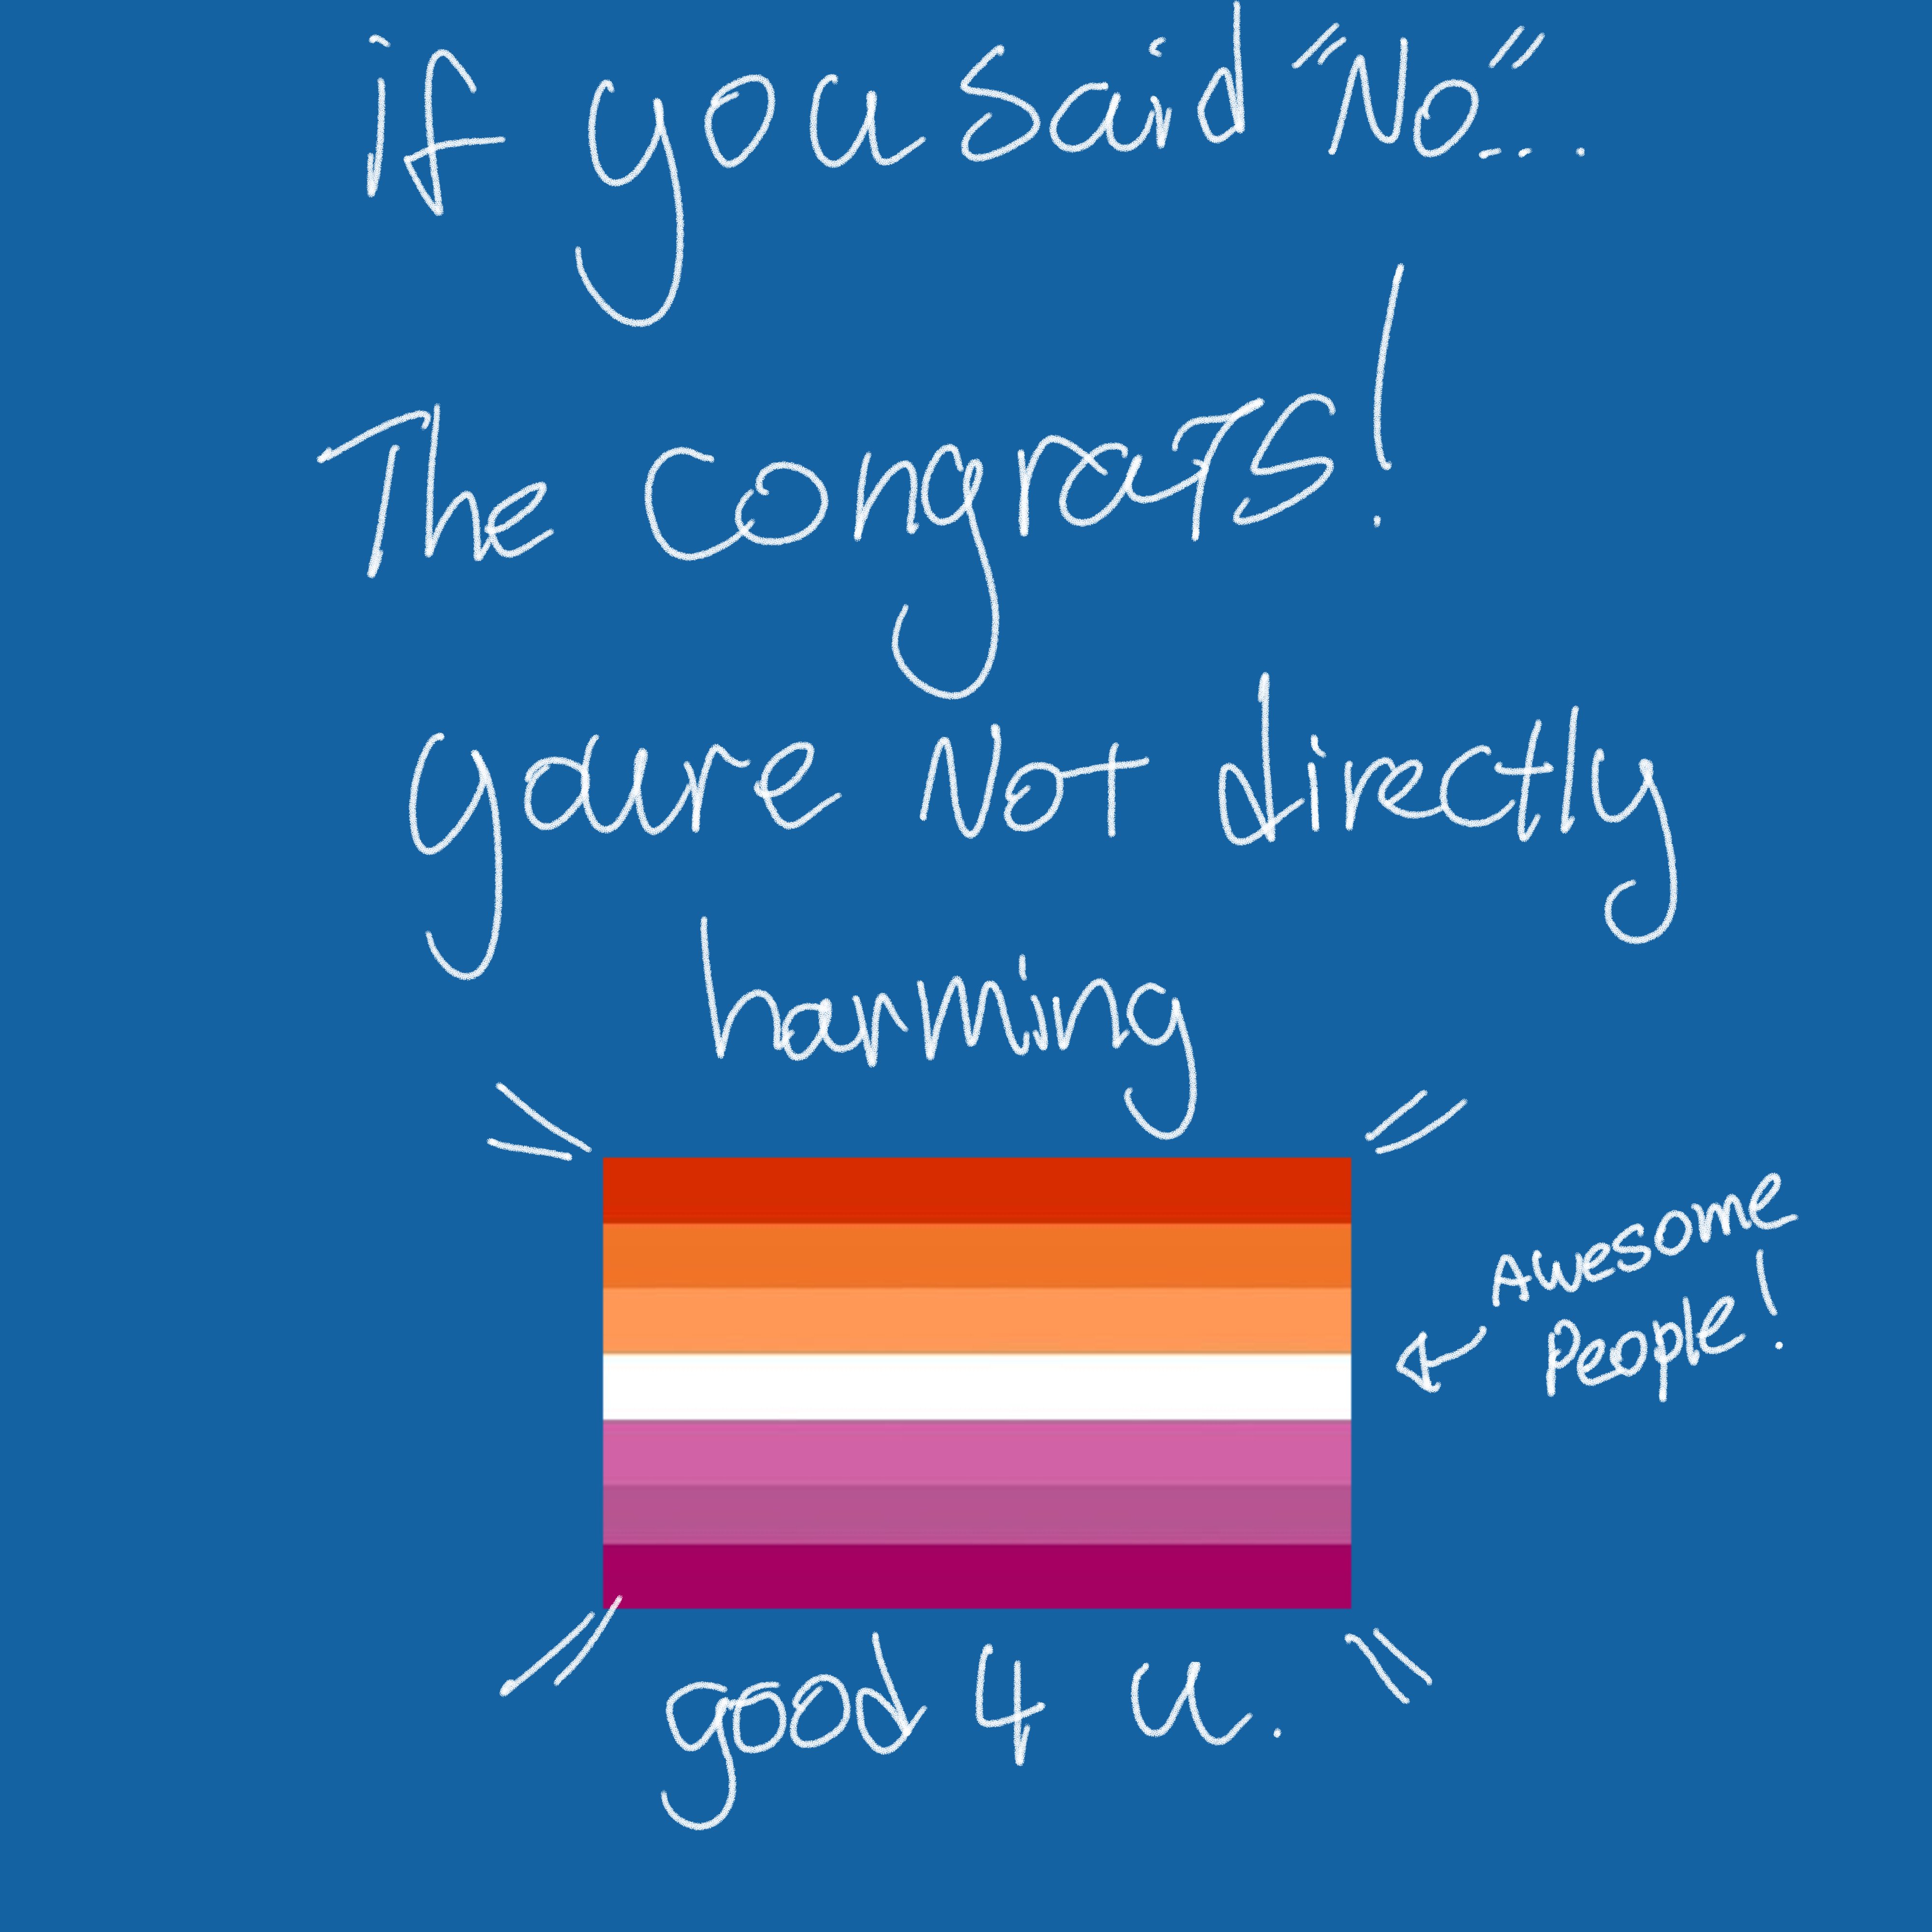 if you said "No"...
The congrats!
youre Not directly
harming
Awesome
People!
good 4 u.